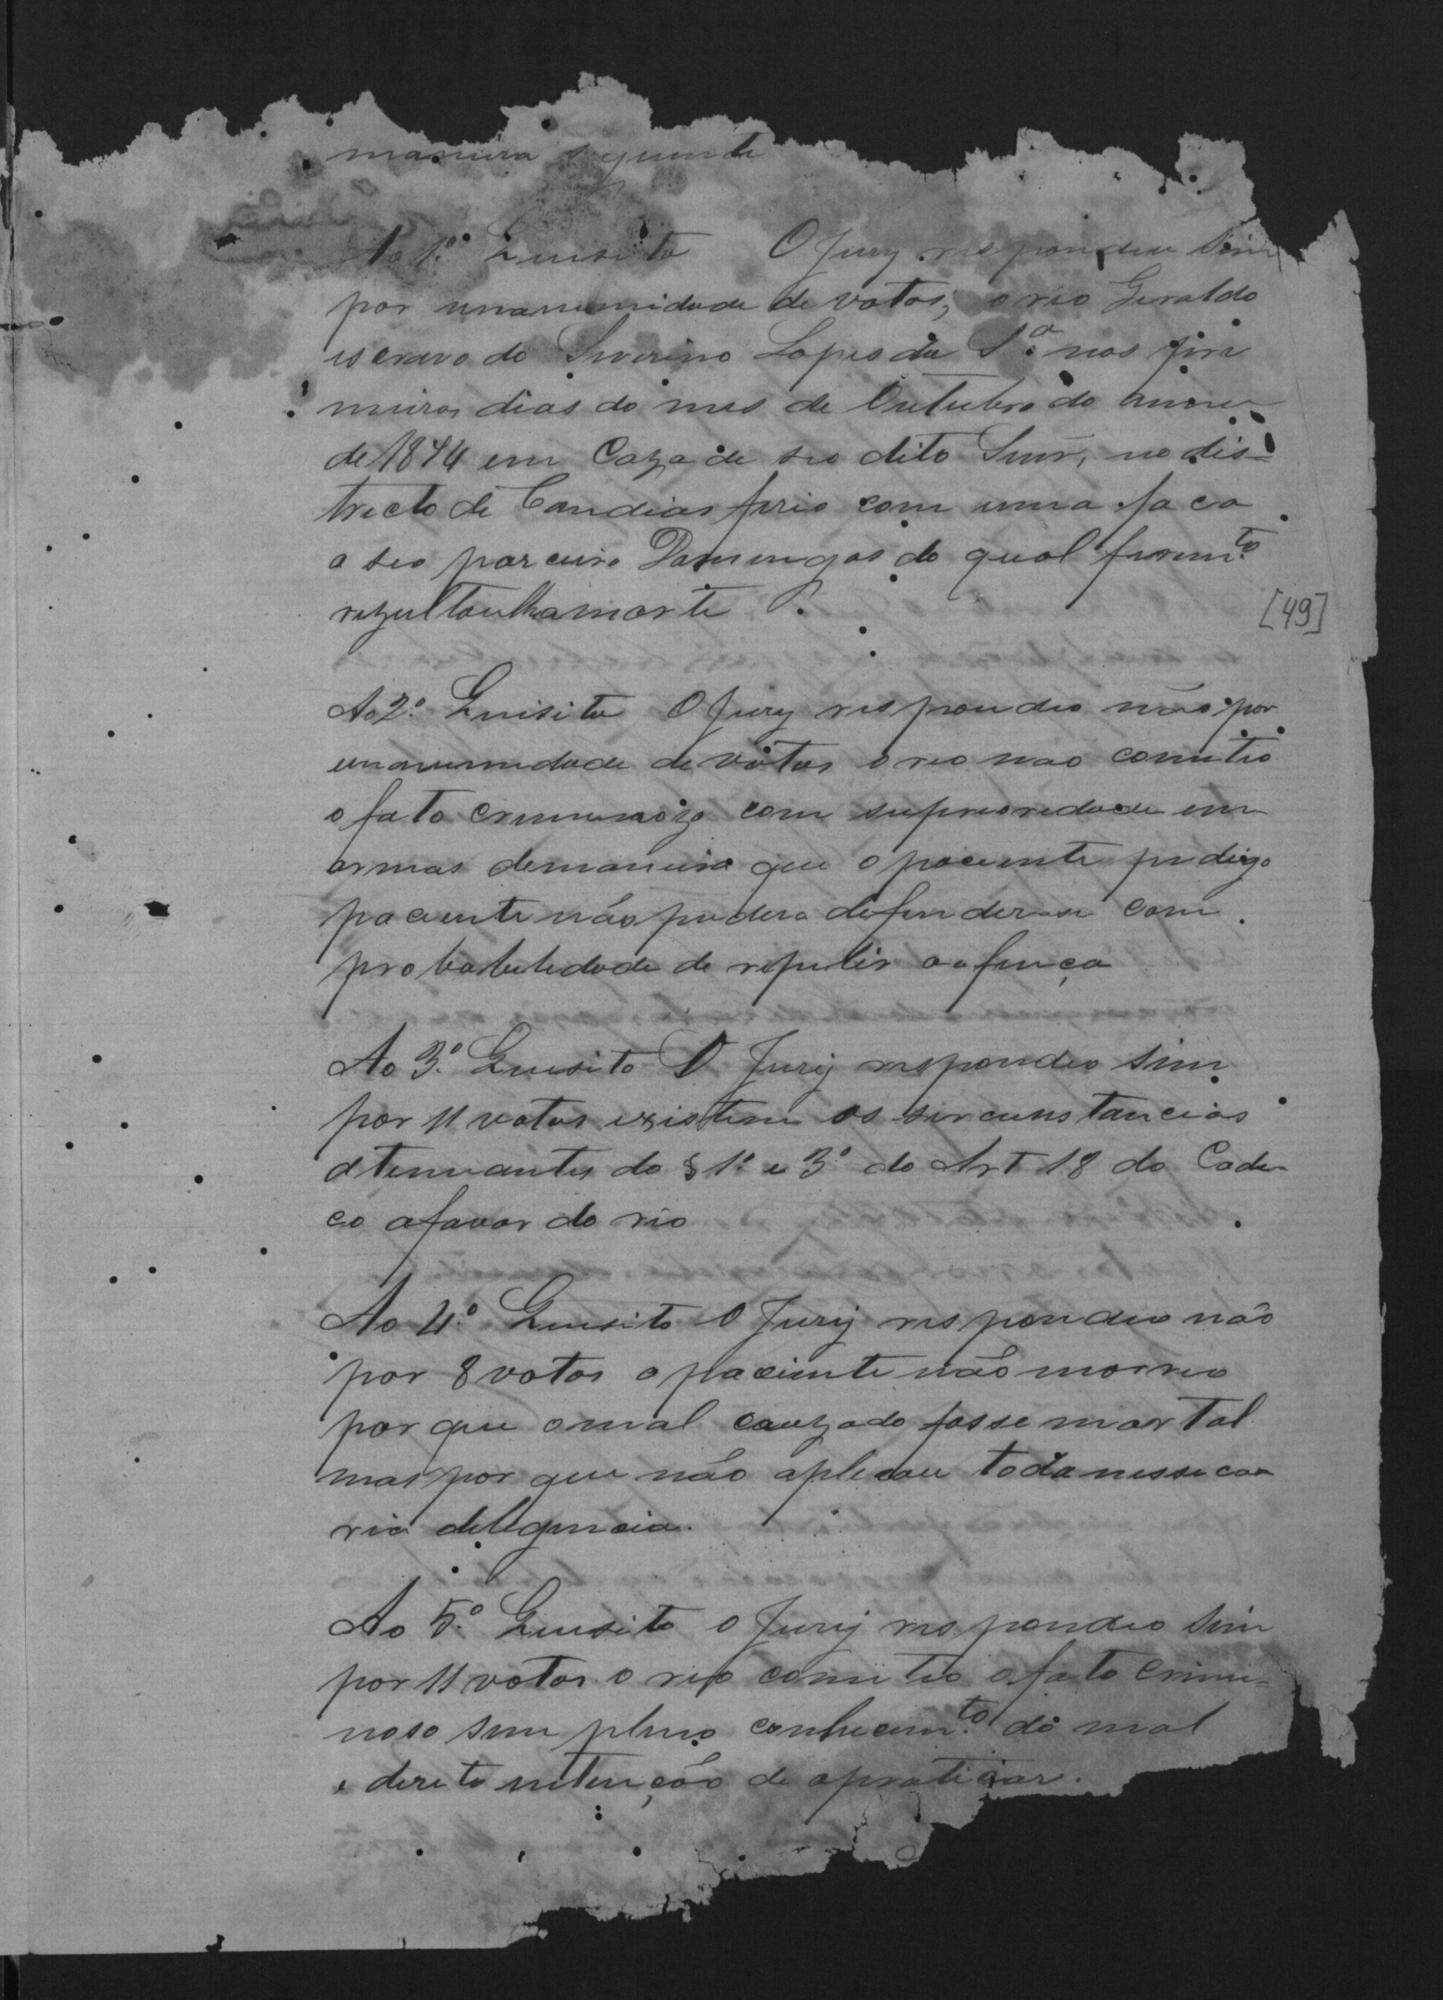 maneira seguinte
Ao 1.º Quisito O Jury respondeu Sim
por unanemidade de votos, o reo Geraldo
escravo de Severino Lopes da S.ª nos pri
meiros dias do mes de Outubro do anno
de 1874 em Caza de seo dito Snnr, no dis=
trecto de Candeias ferio com uma faca
a seo parceiro Domingos do qual ferim.to
rezultoulhamorte.
[49]
Ao 2.º Quisito O Jury respondeo não por
unanemedade de votos o reo nao cometio
o fato cremenozo com supreoredade em
armas demaneira que o paciente pudigo
paciente não pudera defender-se com
probabeledade de repelir aofença
Ao 3.º Quesito O Jurÿ respondeo Sim
por 11 votos existem as sircunstancias
atenuantes do § 1.º e 3.º do Art 18 do Code
co afavor do reo
Ao 4.º Quesito O Jurÿ respondeo não
por 8 votos o paciente não morreo
por que omal cauzado fosse mortal
mas por que não aplicou toda nessica
ria deligencia.
Ao 5.º Quesito o Jurÿ respondeo Sim
por 11 votos o reo cometeo o fato crimi=
noso sem pleno conhecim.to do mal
e dereta intenção de opraticar.